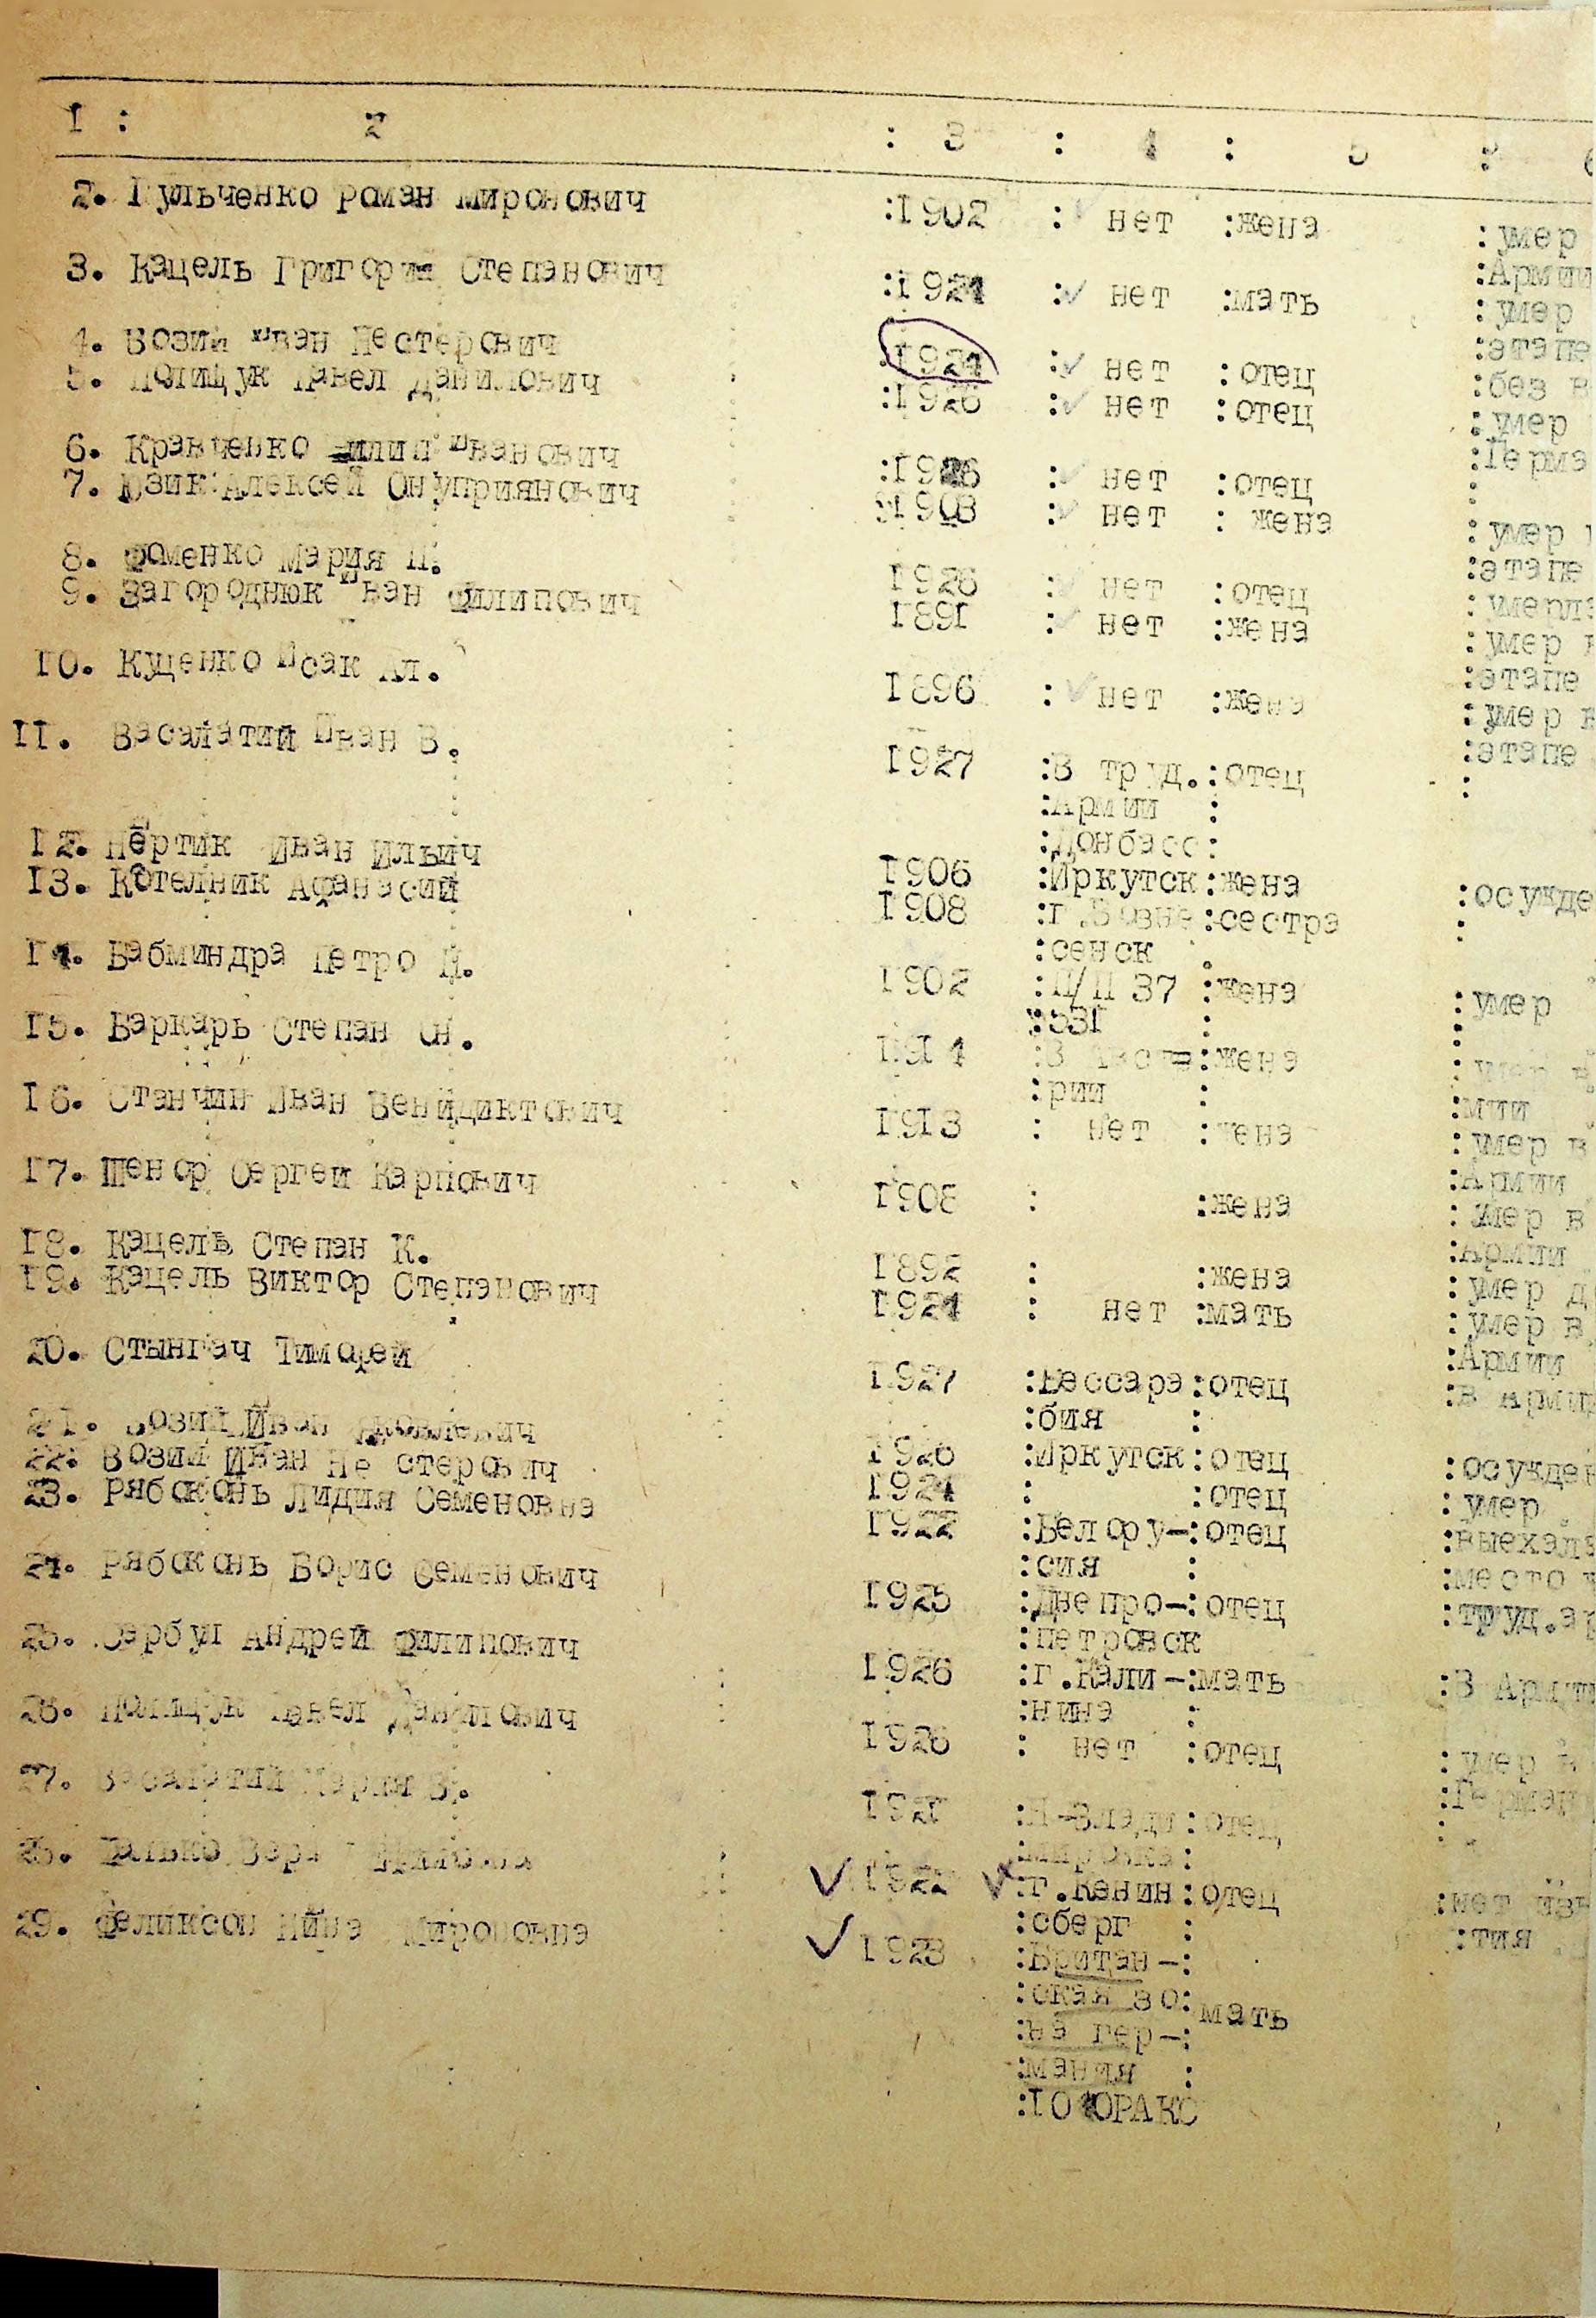 1 : 2 : 3 : 4 : 5 : 6
2. Гульченко Роман Миронович :1902 : нет :жена :умер
:Армии
3. Кацель Григорий Степанович :1924 : нет :мать :умер
:этапе
4. Возий Иван Нестерович :1924 : нет :отец :без в
5. Полищук Павел Данилович :1926 : нет :отец :умер
:Герма
6. Кравченко Филип Иванович :1926 : нет :отец :
7. Юзик Алексей Онуприянович :1903 : нет : жена :умер
:этапе
8. Фоменко Мария П. 1926 : нет :отец :умерла
9. Загороднюк Иван Филипович 1891 : нет :жена :умер в
:этапе
10. Куценко Исак Ал. 1896 : нет :жена :умер в
:этапе
11. Васалатий Иван В. 1927 :В труд.:отец :
:Армии :
:Донбасс:
12. Нертик Иван Ильич 1906 :Иркутск:жена :осужде
13. Котелник Афанасий 1908 :г.Возне:сестра :
:сенск :
14. Бабминдра Петро Д. 1902 :П/П 37 :жена :умер
:531 :
15. Варкарь Степан Ф. 1914 :В :жена
:рии : :мии
16. Станчин Иван Венидиктович 1913 : нет :жена :умер в
:Армии
17. Шенор Сергей Карпович 1908 : :жена :умер в
:Армии
18. Кацель Степан К. 1892 : :жена :умер д
19. Кацель Виктор Степанович 1924 : нет :мать :умер в
:Армии
20. Стынгач Тимофей 1927 :Бессара:отец :в Арми
:бия :
21. Возий Иван Яковлевич 1926 :Иркутск:отец :осужден
22. Возий Иван Нестерович 1924 : :отец :умер
23. Рябоконь Лидия Семеновна 1922 :Белору-:отец :выехала
:сия : :место
24. Рябоконь Борис Семенович 1925 :Днепро-:отец :труд.ар
:петровск
25. Сарбуш Андрей Филипович 1926 :г.Кали-:мать :В Арми
:нина :
26. Полищук Павел Данилович 1926 : нет :отец :умер в
:Герман
27. Васалатий Мария В. 1921 :Н-Влади:отец :
:мировка:
28. Галько Вера 1922 :г.Кенин:отец :нет изв
:сберг : :тия
29. Феликсон Нина Мироновна 1923 :Британ-:
:ская зо:мать
:на гер-:
:мания :
:10 ФРАКС